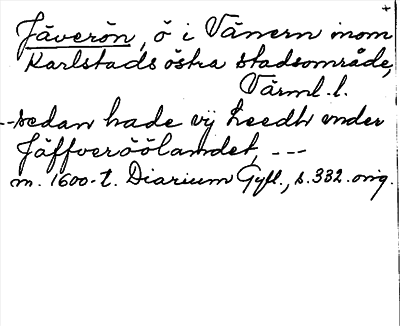 +
Jäverön, ö i Vänern inom
Karlstads östra stadsområde,
Värml. l.
--sedan hade vij Leedh vnder
Jäffveröölandet, ---
m. 1600-t. Diarium Gyll., s. 332. orig.